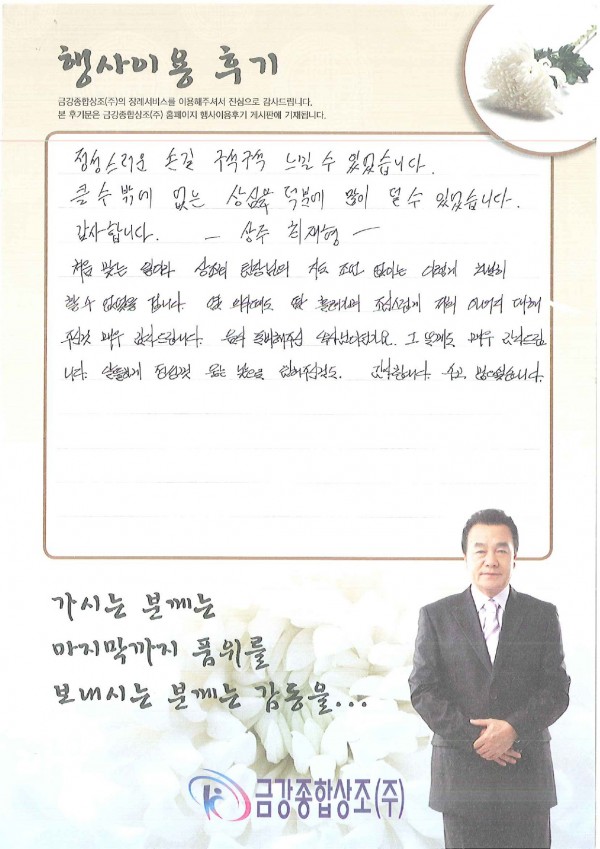 행사이용 후기
금강종합상조(주)의 장례서비스를 이용해주셔서 진심으로 감사드립니다.
본 후기문은 금강종합상조(주) 홈페이지 행사이용후기 게시판에 기재됩니다.
정성스러운 손길 구석구석 느낄 수 있었습니다.
클 수 밖에 없는 상심을 덕분에 많이 덜 수 있었습니다.
감사합니다. — 상주 최재형 —
처음 맞는 일이라 상조의 팀장님의 지도 조언 없이는 이렇게
할 수 없었을 겁니다. 조심스럽게 저희 어머니 대해
주신것 매우 감사드립니다. 그 밖에도 매우 감사드립
니다. 감사합니다. 수고 많으셨습니다.
가시는 분께는
마지막까지 품위를
보내시는 분께는 감동을...
금강종합상조(주)